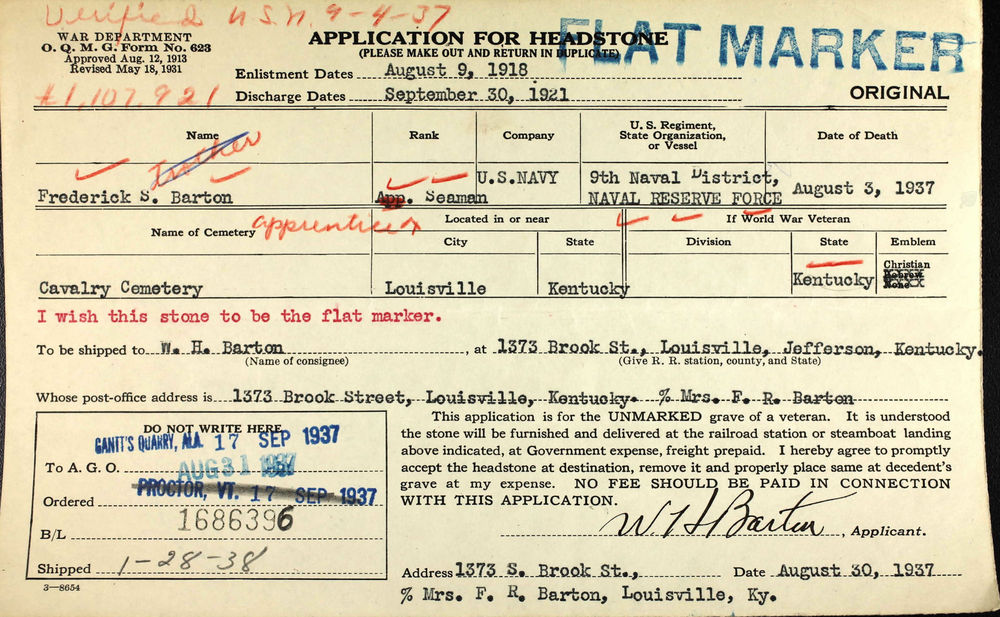 Verified U.S.N. 9-4-37
FLAT MARKER
WAR DEPARTMENT
O. Q. M. G. Form No. 623
Approved Aug. 12, 1913
Revised May 18, 1931
#1,107,921
APPLICATION FOR HEADSTONE
(PLEASE MAKE OUT AND RETURN IN DUPLICATE)
Enlistment Dates August 9, 1918
Discharge Dates September 30, 1921
ORIGINAL
Name Rank Company U. S. Regiment, State Organization, or Vessel Date of Death
Frederick S. Barton App. Seaman U.S.NAVY 9th Naval District, NAVAL RESERVE FORCE August 3, 1937
apprentice
Name of Cemetery Located in or near If World War Veteran
City State Division State Emblem
Cavalry Cemetery Louisville Kentucky Kentucky Christian Hebrew None
I wish this stone to be the flat marker.
To be shipped to W. H. Barton, at 1373 Brook St., Louisville, Jefferson, Kentucky.
(Name of consignee) (Give R. R. station, county, and State)
Whose post-office address is 1373 Brook Street, Louisville, Kentucky. % Mrs. F. R. Barton
DO NOT WRITE HERE
GANTT'S QUARRY, ALA. 17 SEP 1937
To A. G. O. AUG 31 1937
PROCTOR, VT. 17 SEP 1937
Ordered
1686396
B/L
Shipped 1-28-38
3—8654
This application is for the UNMARKED grave of a veteran. It is understood
the stone will be furnished and delivered at the railroad station or steamboat landing
above indicated, at Government expense, freight prepaid. I hereby agree to promptly
accept the headstone at destination, remove it and properly place same at decedent's
grave at my expense. NO FEE SHOULD BE PAID IN CONNECTION
WITH THIS APPLICATION.
W H Barton, Applicant.
Address 1373 S. Brook St., Date August 30, 1937
% Mrs. F. R. Barton, Louisville, Ky.